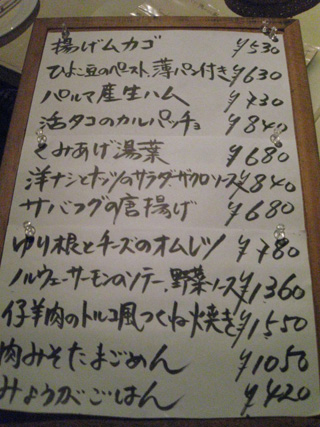 揚げムカゴ ¥530
ひよこ豆のペースト、薄パン付き ¥630
パルマ産生ハム ¥730
活タコのカルパッチョ ¥840
くみあげ湯葉 ¥680
洋ナシとナッツのサラダ、ザクロソース ¥840
サバフグの唐揚げ ¥680
ゆり根とチーズのオムレツ ¥780
ノルウェーサーモンのソテー、野菜ソース ¥1360
仔羊肉のトルコ風つくね焼き ¥1550
肉みそたまごめん ¥1050
みょうがごはん ¥420